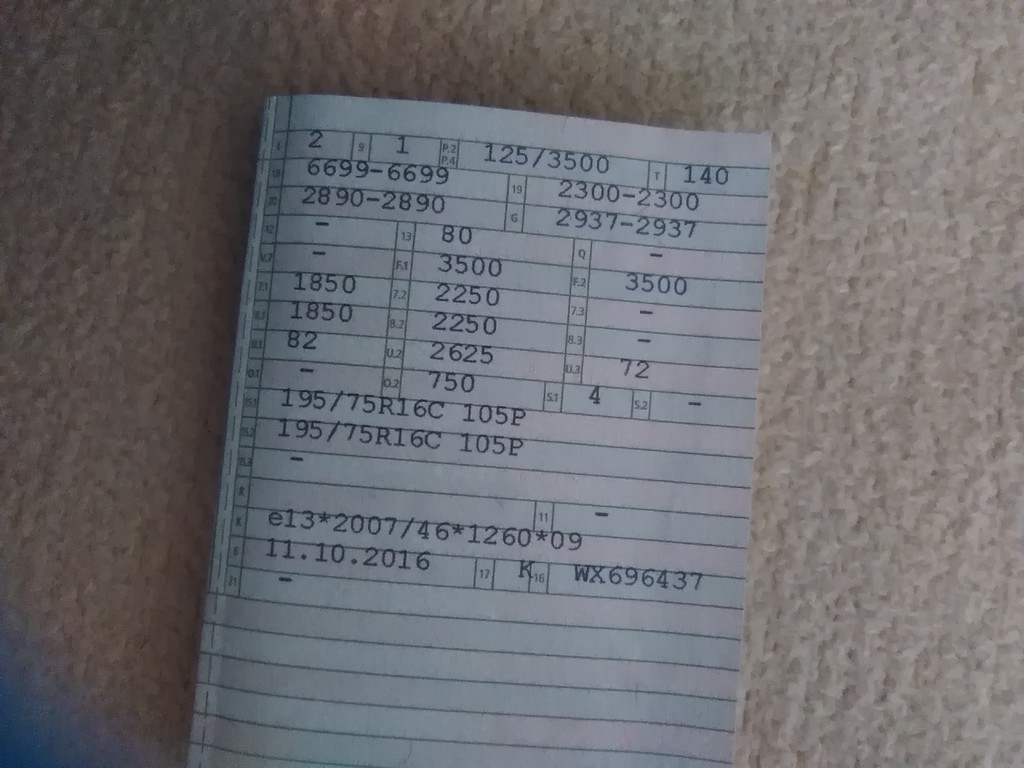 L 2 9 1 P.2 P.4 125/3500 T 140
18 6699-6699 19 2300-2300
20 2890-2890 G 2937-2937
12 - 13 80 Q -
V.7 - F.1 3500 F.2 3500
7.1 1850 7.2 2250 7.3 -
8.1 1850 8.2 2250 8.3 -
U.1 82 U.2 2625 U.3 72
O.1 - O.2 750 S.1 4 S.2 -
15.1 195/75R16C 105P
15.2 195/75R16C 105P
15.3 -
R 11 -
K e13*2007/46*1260*09
6 11.10.2016 17 K 16 WX696437
21 -